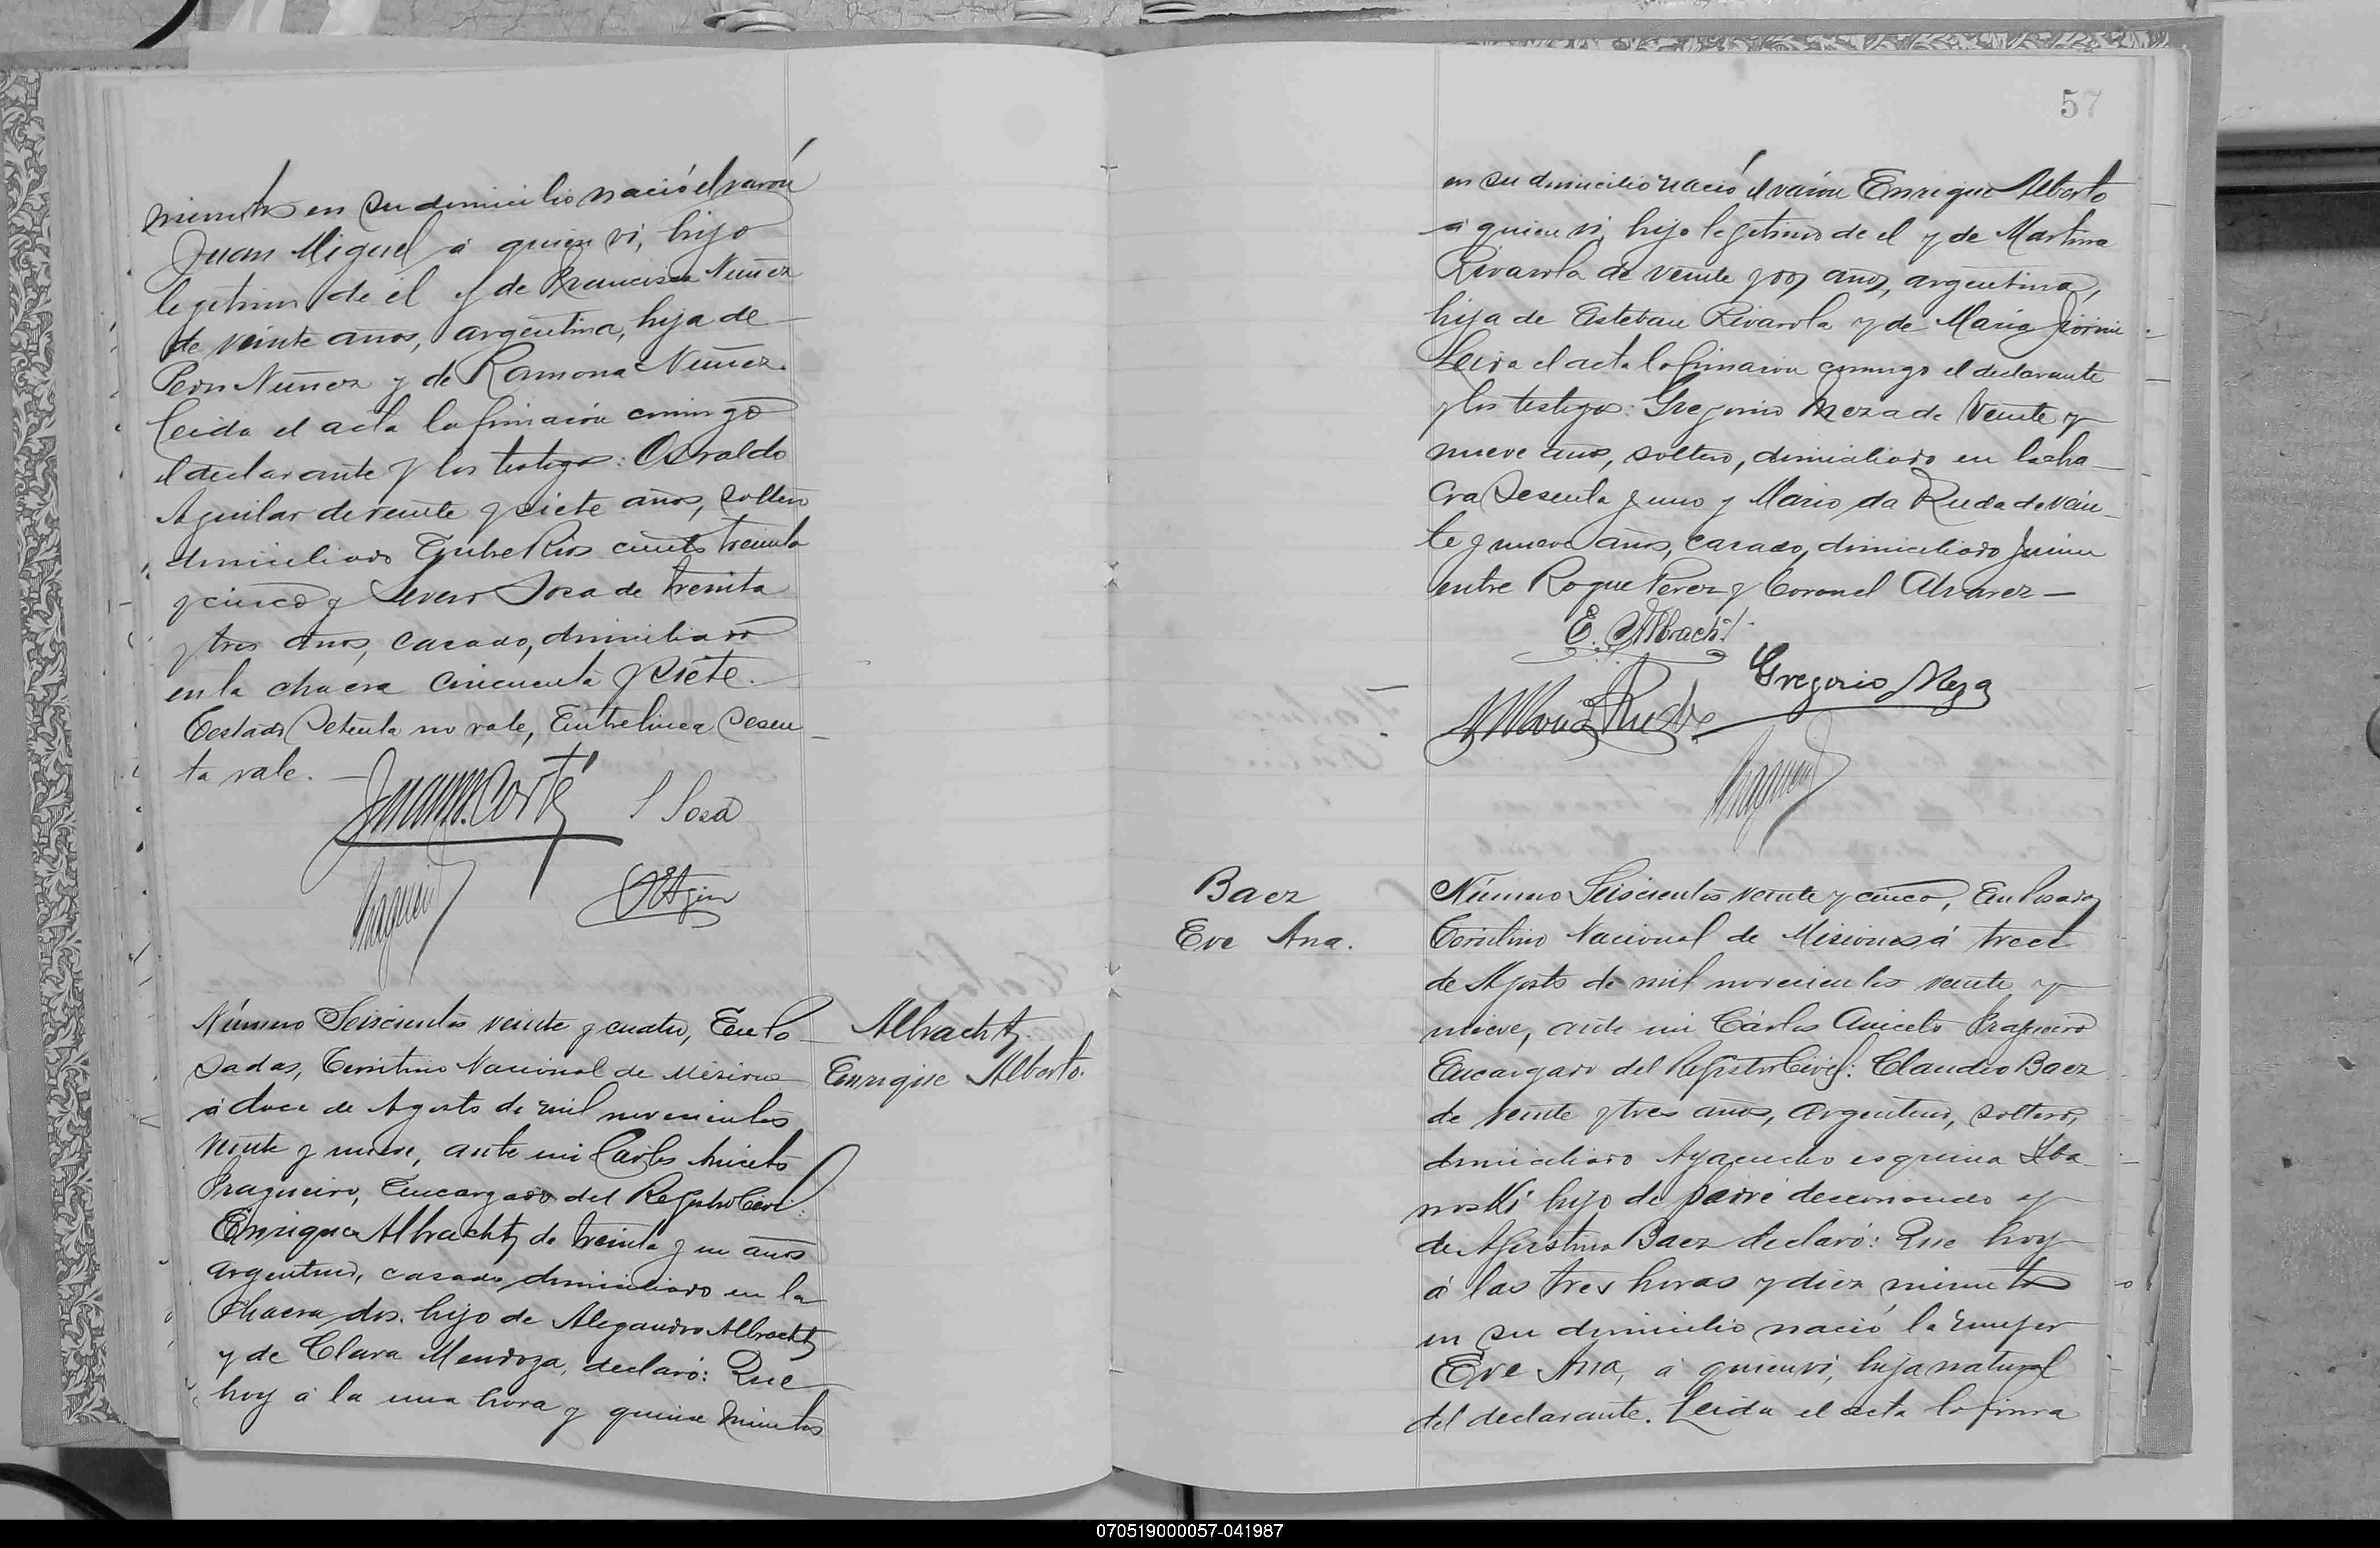 minutos en su domicilio nació el varón
Juan Miguel á quien ví, hijo
legítimo de el y de Francisca Nuñez
de veinte años, argentina, hija de
Pedro Nuñez y de Ramona Nuñez.
Leida el acta la firmaron conmigo
el declarante y los testigos: Osvaldo
Aguilar de veinte y siete años, soltero
domiciliado Entre Rios ciento treinta
y cinco y Severo Sosa de treinta
y tres años, casado, domiciliado
en la chacra cincuenta y siete.
Testado Setenta no vale, Entrelinea sesen
ta vale.
Juan M. Corté
S Sosa
Número Seiscientos veinte y cuatro, En Po
sadas, Territorio Nacional de Misiones
á doce de Agosto de mil novecientos
veinte y nueve, ante mi Carlos Aniceto
Fragueiro, Encargado del Registro Civil:
Enrique Albracht, de treinta y un años
argentino, casado domiciliado en la
chacra dos. hijo de Alegandro Albracht
y de Clara Mendoza, declaró: Que
hoy á la una hora y quince minutos
Albracht
Enrique Alberto.
57
en su domicilio nació el varón Enrique Alberto
á quien ví, hijo legitimo de el y de Martina
Rivarola de veinte y dos años, argentina,
hija de Esteban Rivarola y de Maria
Leida el acta la firmaron conmigo el declarante
y los testigos: Gregorio Meza de veinte y
nueve años, soltero, domiciliado en la cha
cra sesenta y uno y Mario da Rueda de vein
te y nueve años, casado, domiciliado Junin
entre Roque Perez y Coronel Alvarez —
E. Albracht
Gregorio Meza
Baez
Eve Ana.
Número Seiscientos veinte y cinco, En Posadas
Territorio Nacional de Misiones á trece
de Agosto de mil novecientos veinte y
nueve, ante mi Cárlos Aniceto Fragueiro
Encargado del Registro Civil: Claudio Baez
de veinte y tres años, argentino, soltero,
domiciliado Ayacucho esquina
hijo de padre desconocido y
de Agustina Baez declaró: Que hoy
á las tres horas y diez minutos
en su domicilio nació la mujer
Eve Ana, á quien ví, hija natural
del declarante. Leida el acta la firma
070519000057-041987